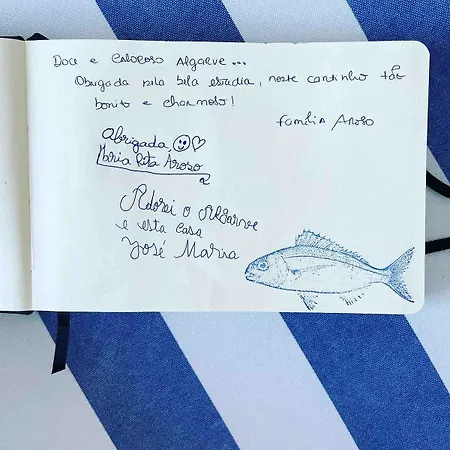 Doce e Caloroso Algarve...
Obrigada pela bela estadia, neste cantinho tão
bonito e charmoso!
Família Aroso
Obrigada,
Maria Rita Aroso
Adorei o Algarve
e esta casa
José Maria